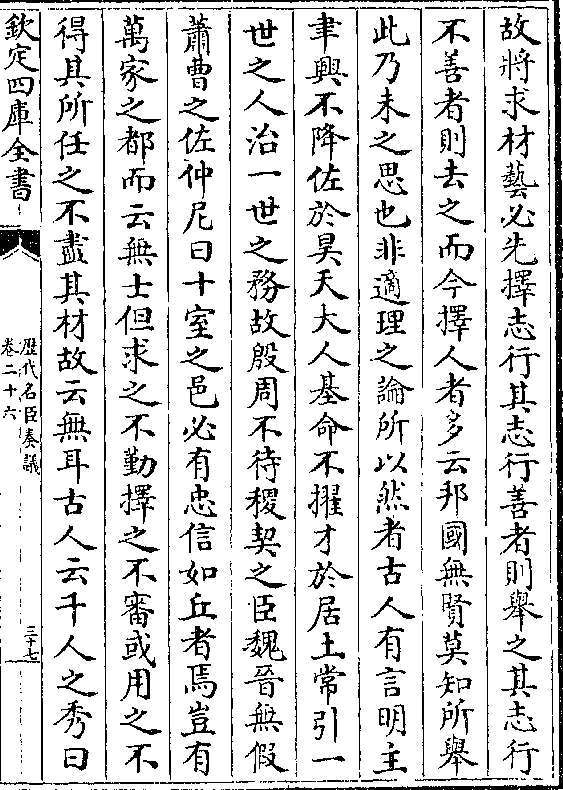 故將求材藝必先擇志行其志行善者則舉之其志行
不善者則去之而今擇人者多云邦國無賢莫知所舉
此乃未之思也非適理之論所以然者古人有言明主
聿興不降佐於昊天大人基命不擢才於居土常引一
世之人治一世之務故殷周不待稷契之臣魏晉無假
蕭曹之佐仲尼曰十室之邑必有忠信如丘者焉豈有
萬家之都而云無士但求之不勤擇之不審或用之不
得其所任之不盡其材故云無耳古人云千人之秀曰
欽定四庫全書
歷代名臣奏議
卷二十六
三十七